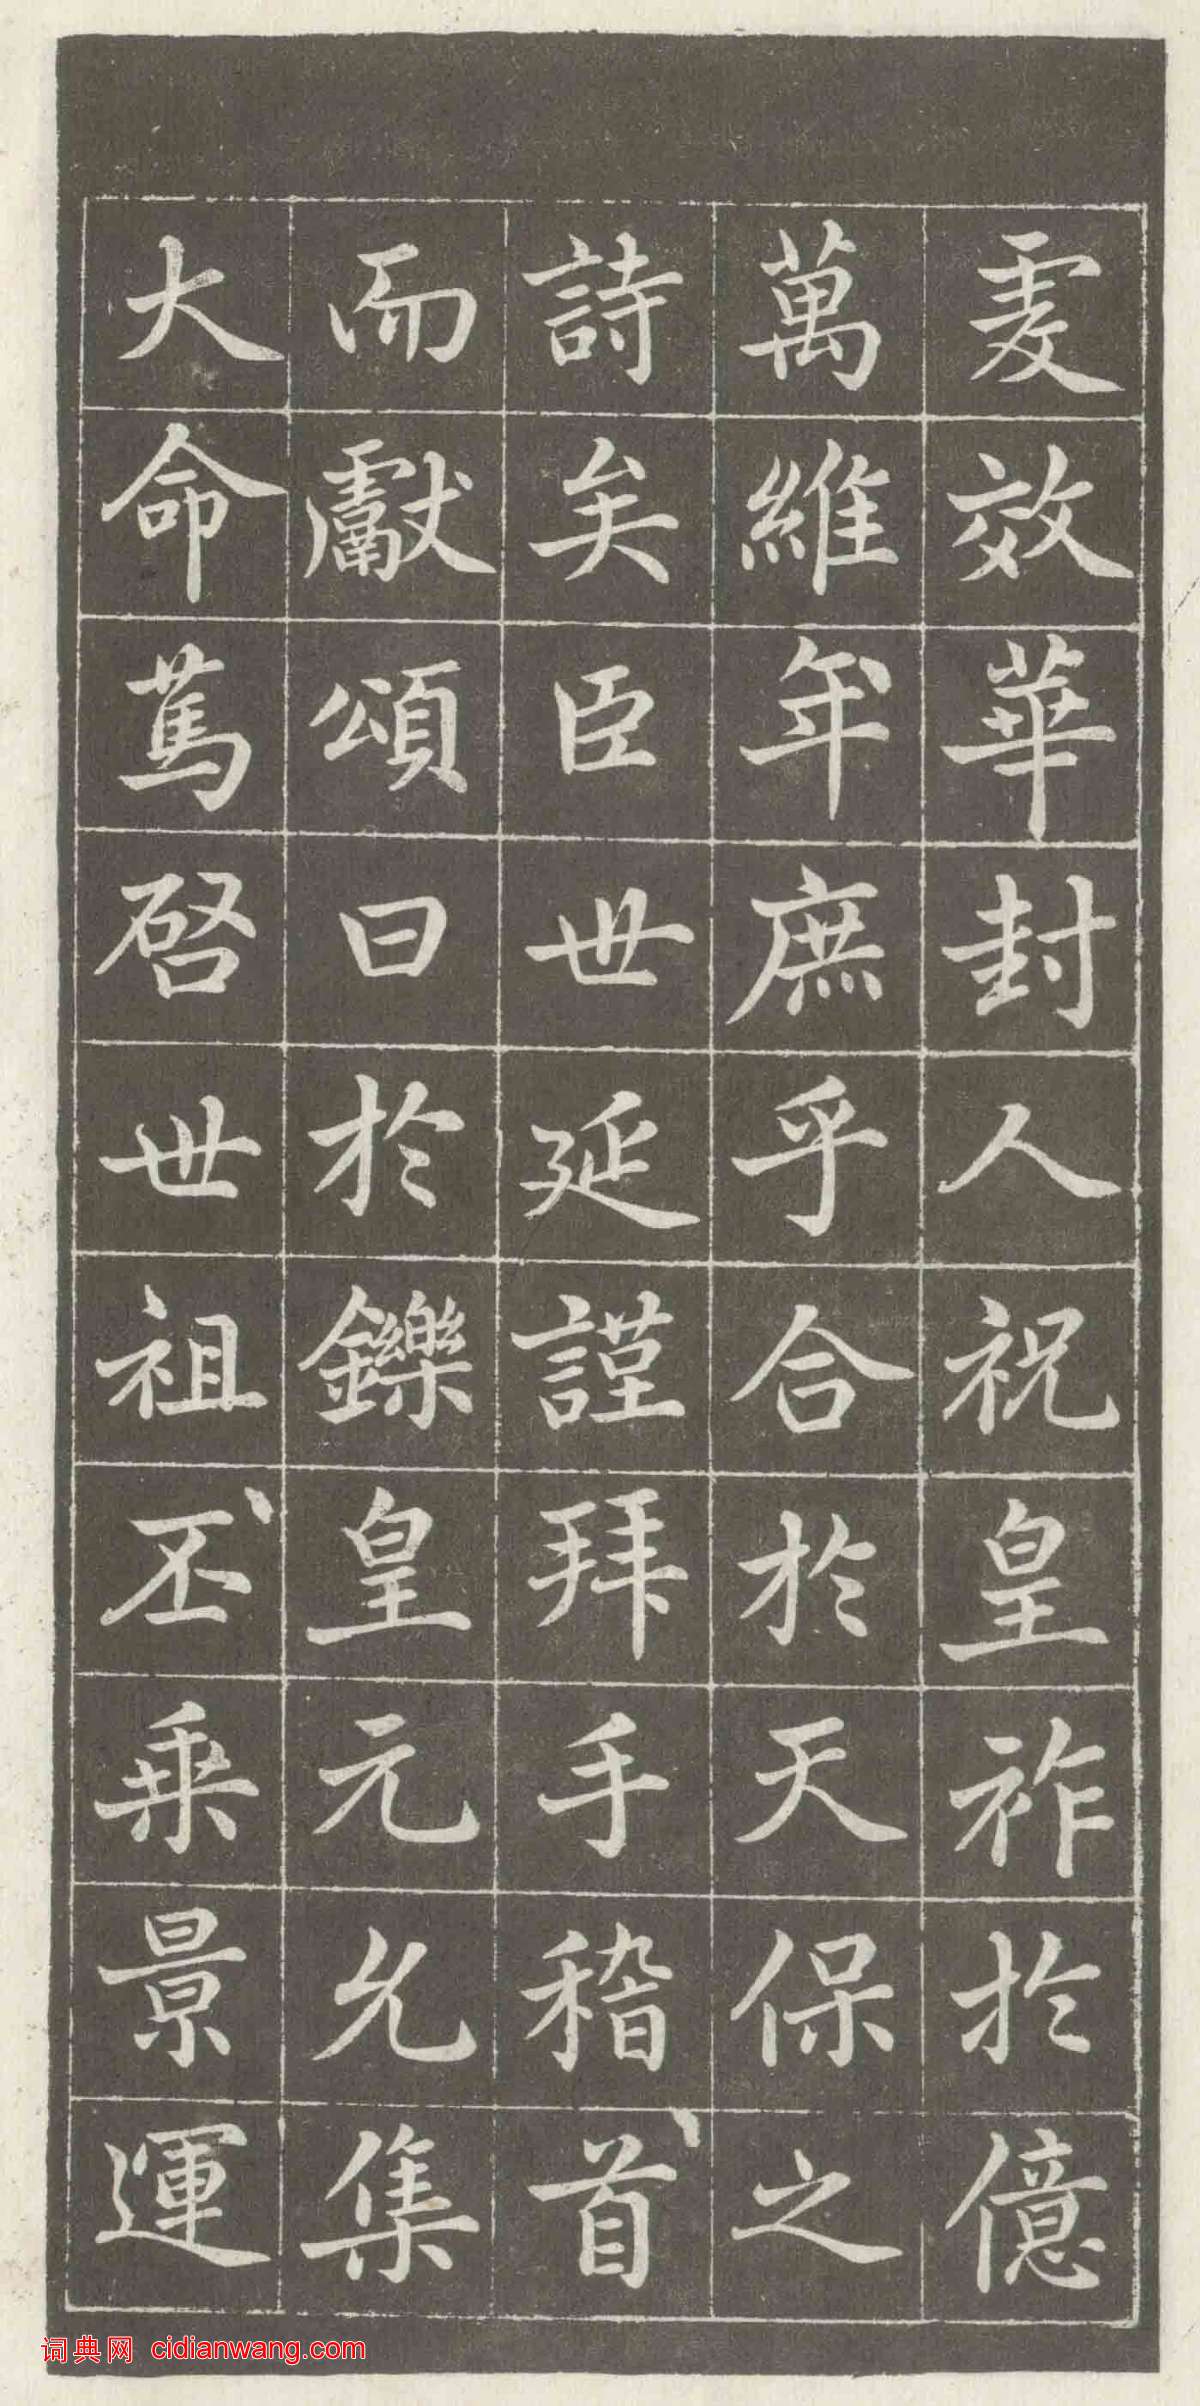 爰效華封人祝皇祚於億
萬維年庶乎合於天保之
詩矣臣世延謹拜手稽首
而獻頌曰於鑠皇元允集
大命篤啓世祖丕乗景運
词典网 cidianwang.com